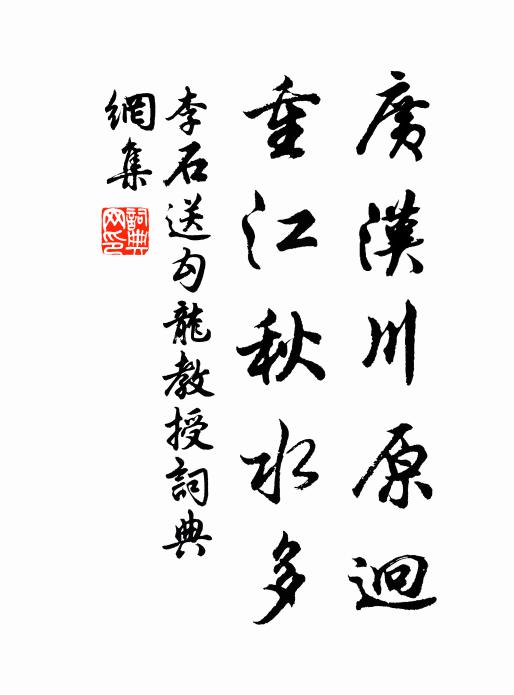 廣漢川原迥
重江秋水多
李石送勾龍教授詞典
網集
詞典網印